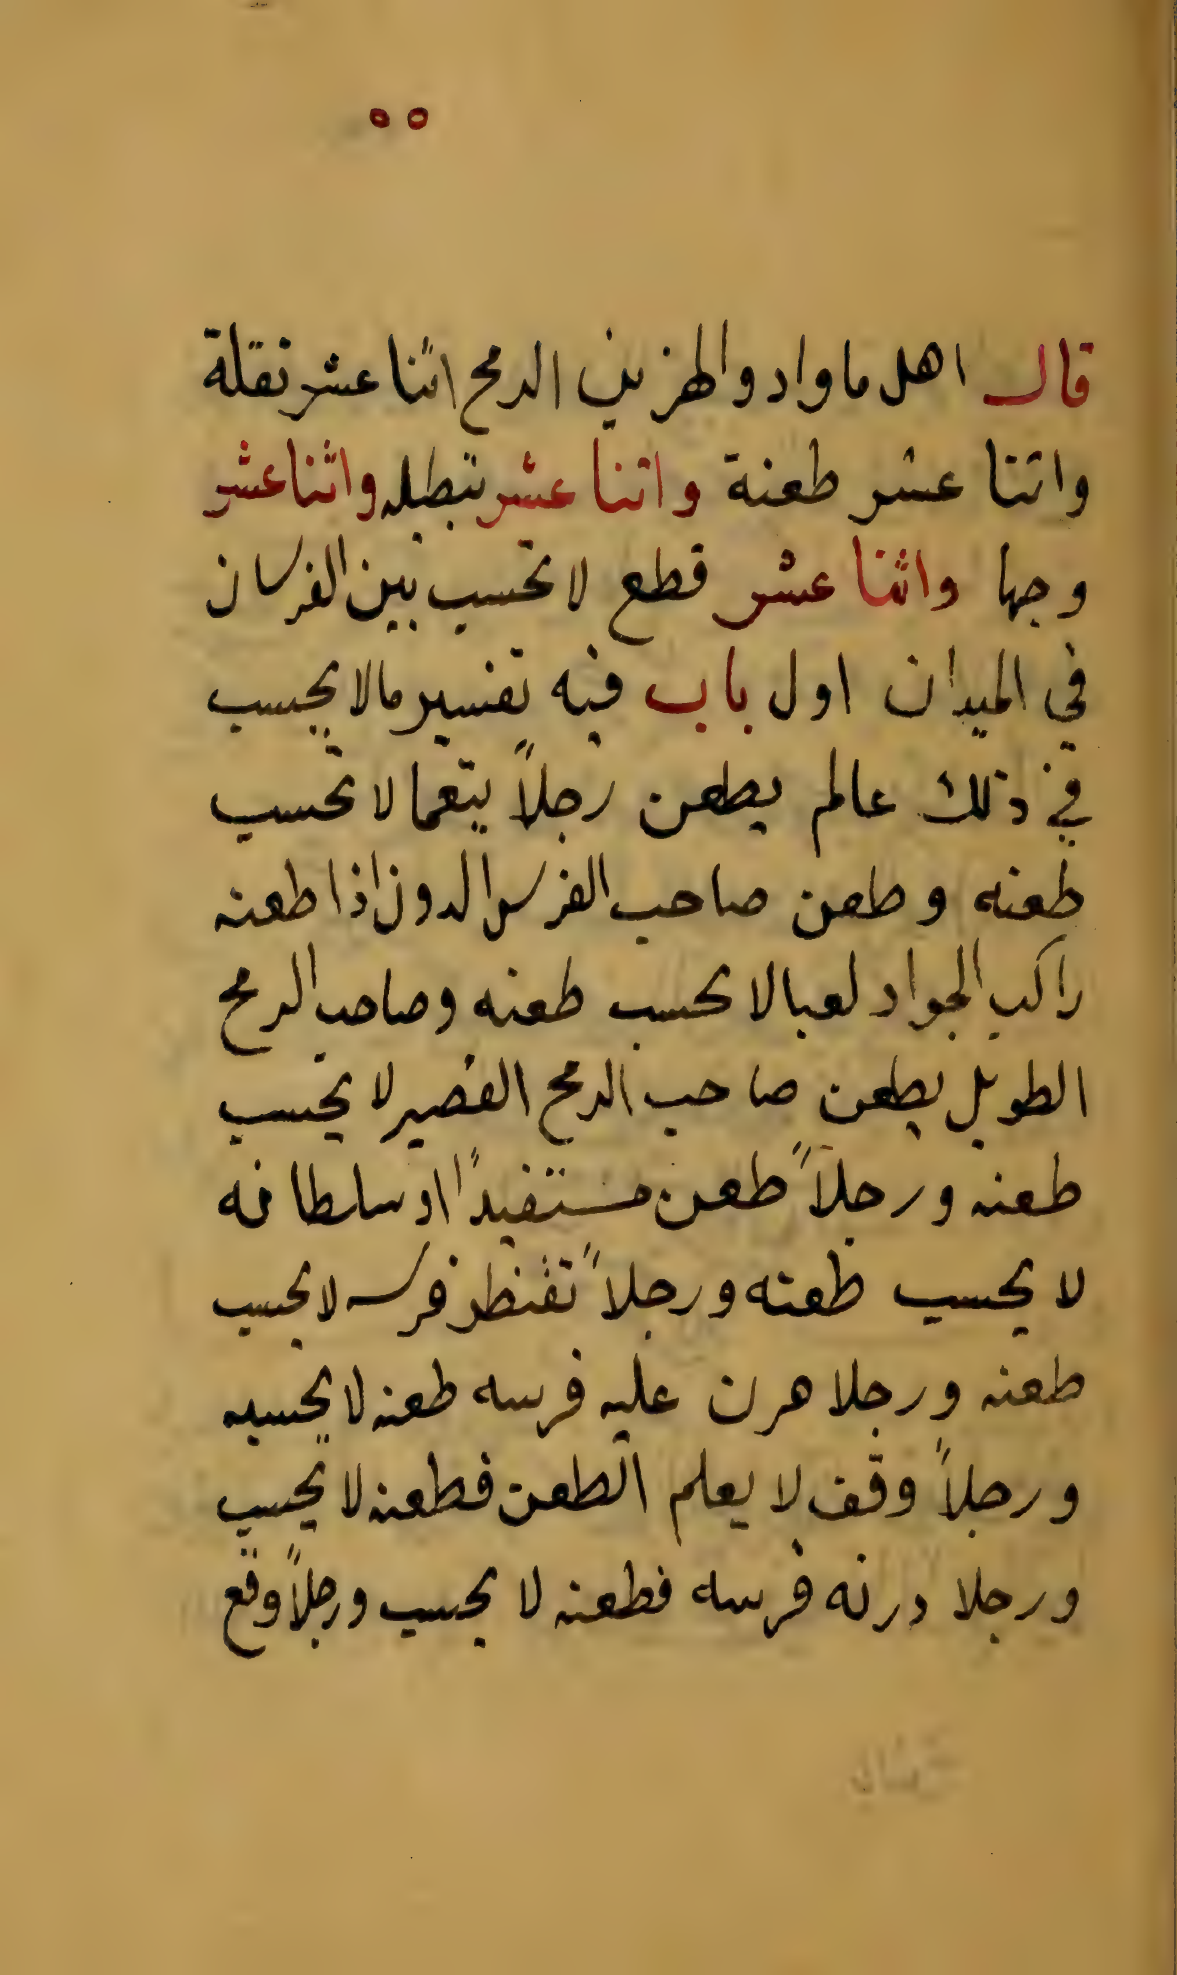 ٥٥
قال اهل ماواد والهزبين الرمح اثنا عشر نقلة
واثنا عشر طعنة واثنا عشر تبطيله واثنا عشر
وجها واثنا عشر قطع لا تحسب بين الفرسان
في الميدان اول باب فيه تفسير مالا يحسب
في ذلك عالم يطعن رجلاً يتعما لا تحسب
طعنه وطعن صاحب الفرس الدون اذا طعنه
راكب الجواد لعبا لا تحسب طعنه وصاحب الرمح
الطويل يطعن صاحب الرمح القصير لا يحسب
طعنه ورجلاً طعن مستفيداً او سلطانه
لا يحسب طعنه ورجلاً تقنطر فرسه لا يحسب
طعنه ورجلا هرن عليه فرسه طعنه لا يحسبه
ورجلاً وقف لا يعلم الطعن فطعنه لا يحسب
ورجلا درنه فرسه فطعنه لا يحسب ورجلاً وقع